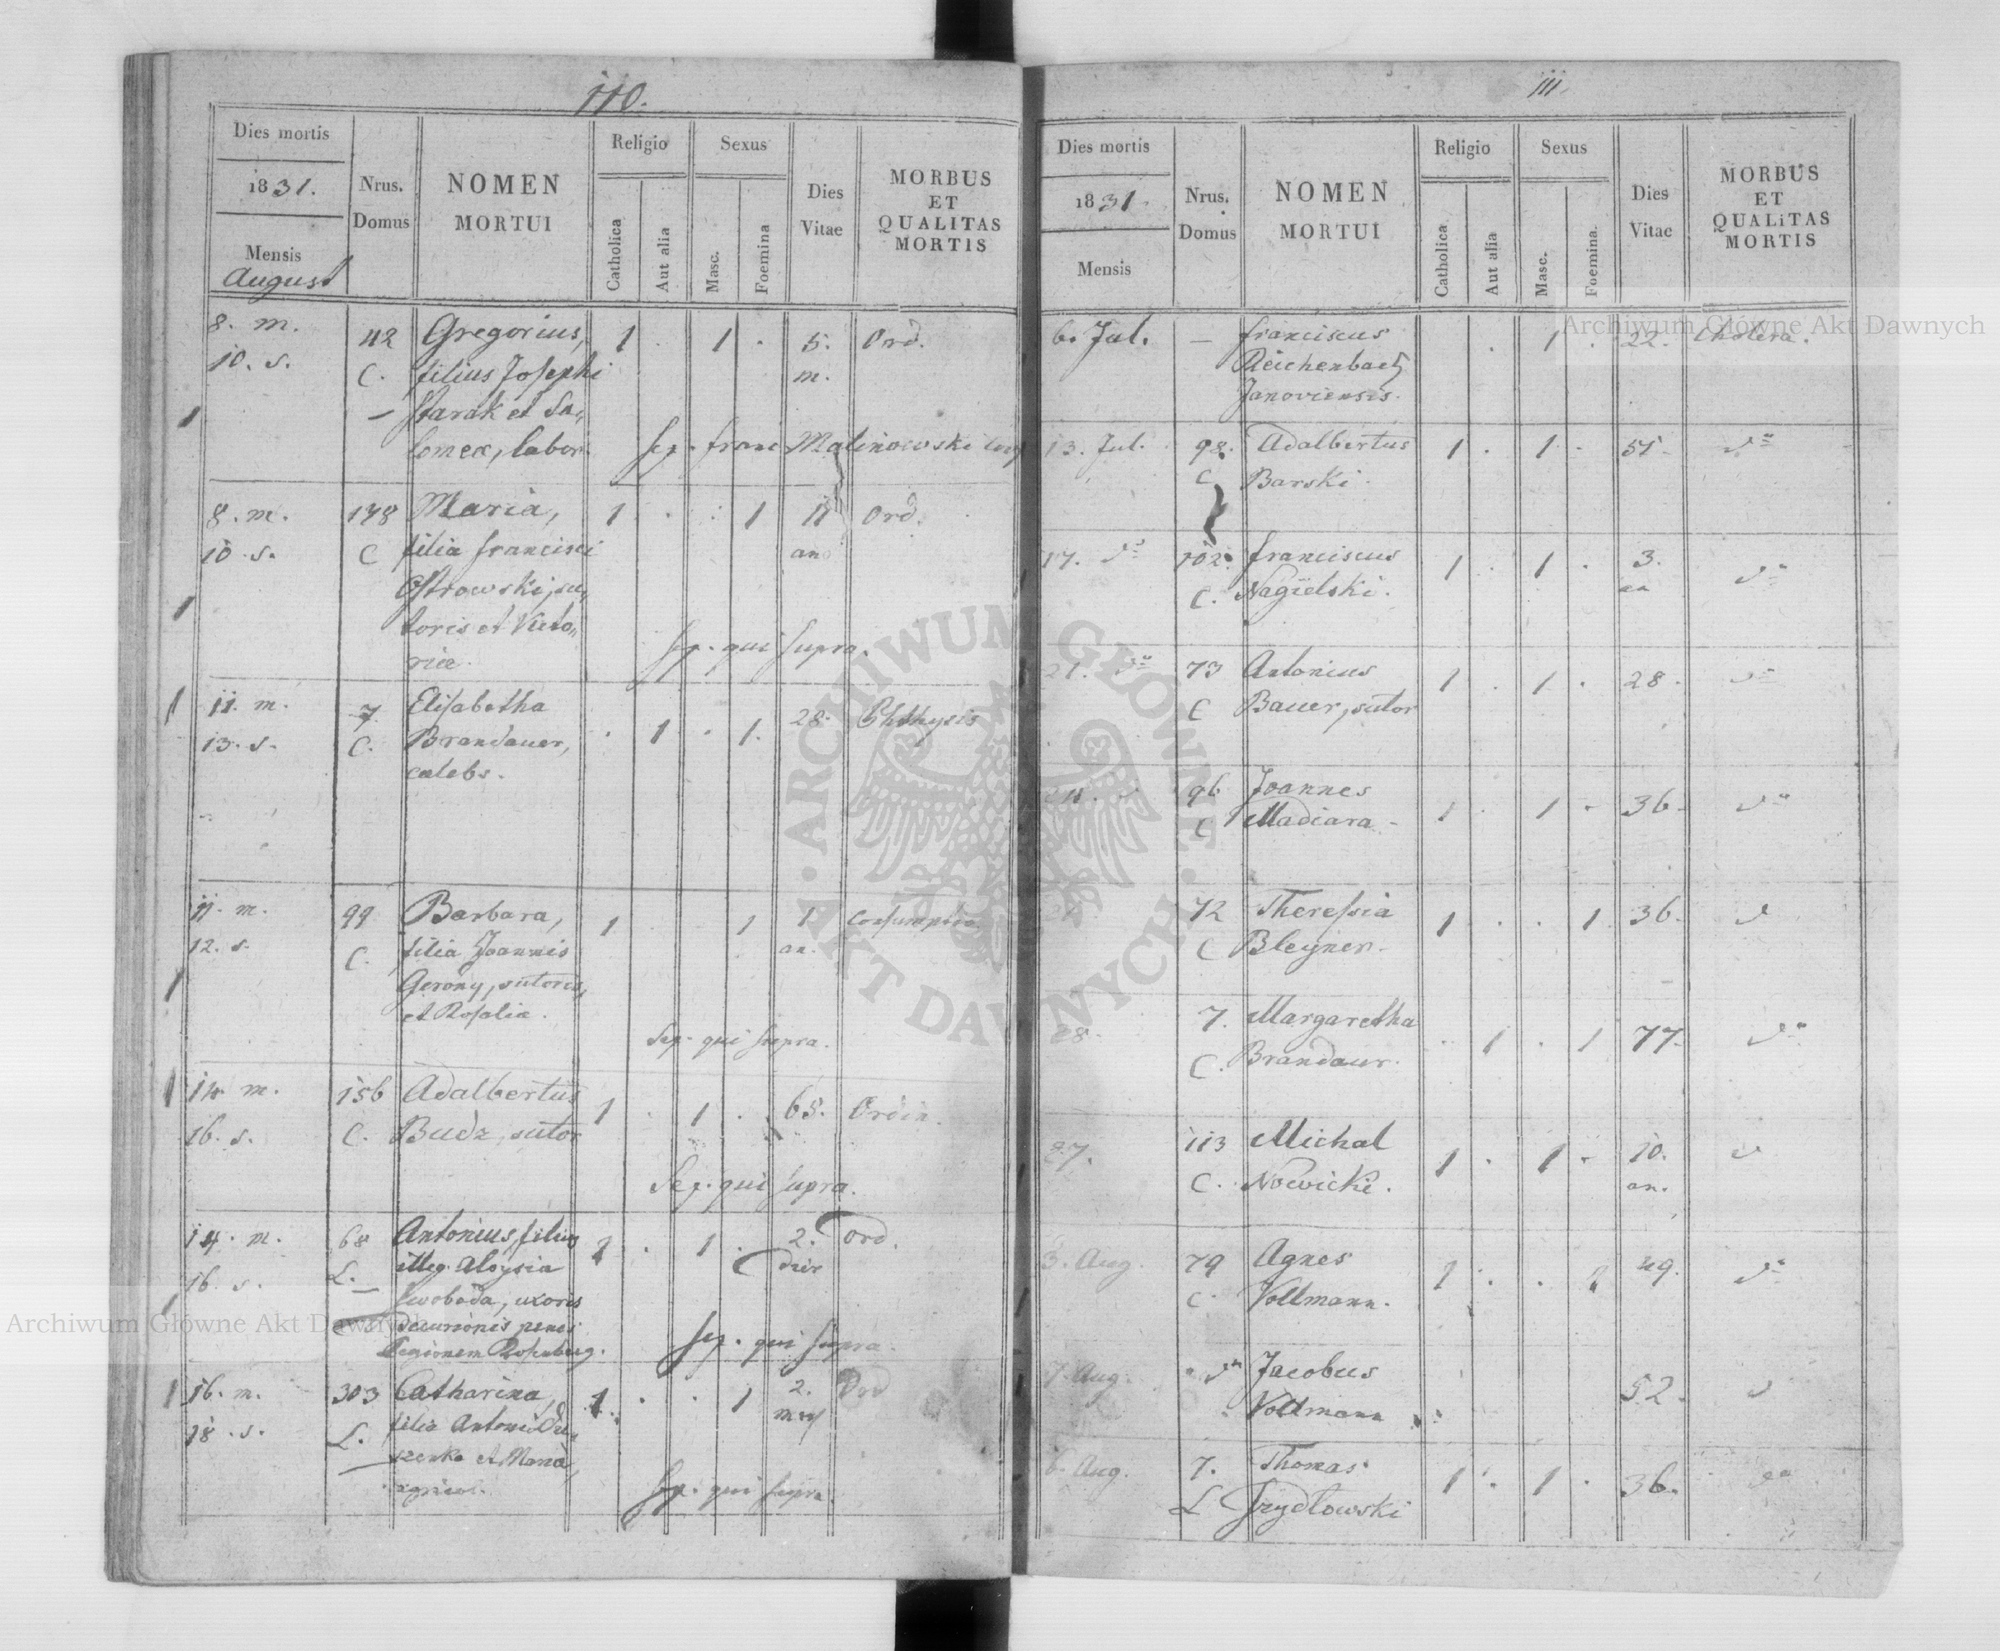 110.
Dies mortis
1831.
Mensis
August
Nrus.
Domus
NOMEN
MORTUI
Religio
Catholica
Aut alia
Sexus
Masc.
Foemina
Dies
Vitae
MORBUS
ET
QUALITAS
MORTIS
8. m. 42 Gregorius, 1 . 1 . 5. Ord.
10. s. C. filius Josephi m.
Starak et Sa,
lomeæ, labor. Sep. franc Malinowski
8. m. 178 Maria, 1 . . 1 11 Ord.
10. s. C filia francisci an
Ostrowski, su,
toris et Victo,
riæ. Sep. qui supra.
11. m. 7 Elisabetha . 1 . 1. 28. Phthysis
13. s. C. Brandauer,
cælebs.
11. m. 99 Barbara, 1 . . 1 1. Consumptio
12. s. C. filia Joannis an.
Gerony, sutoris,
et Rosaliæ.
Sep. qui supra.
14. m. 156 Adalbertus 1 . 1 . 65. Ordin.
16. s. C. Budz, sutor
Sep. qui supra.
14. m. 68 Antonius, filius 1 . 1 . 2. ord.
16. s. L. illeg. Aloysia dier
Swoboda, uxoris
decurionis penes
Legionem Rosenberg. Sep. qui supra.
16. m. 303 Catharina, 1 . . 1 2. Ord
18. s. L. filia Antoni
et Maria,
agricol. Sep. qui supra.
111.
Dies mortis
1831.
Mensis
Nrus.
Domus
NOMEN
MORTUI
Religio
Catholica
Aut alia
Sexus
Masc.
Foemina.
Dies
Vitae
MORBUS
ET
QUALITAS
MORTIS
6. Jul. – franciscus . 1 . 22. Cholera.
Reichenbach
Janoviensis.
13. Jul. 98. Adalbertus 1 . 1 . 51. do
C Barski.
17. do 102. franciscus 1 . 1 . 3. do
C. Nagielski. an
21. do 73 Antonius 1 . 1 . 28. do
C Bauer, sutor
96 Joannes 1 . 1 . 36. do
C Madiara
72 Theressia 1 . . 1 36. d
C Bleyner.
28. 7. Margaretha . 1 . 1 77. do
C. Brandaur.
27. 113 Michal 1 . 1 . 10. d
C. Nowicki. an.
3. Aug. 79 Agnes 1 . . 1 49. do
C Vollmann.
7. Aug. do Jacobus 52. d
Vollmann
6. Aug. 7. Thomas 1 . 1 . 36. do
L Szydłowski
Archiwum Główne Akt Dawnych
Archiwum Główne Akt Dawnych
ARCHIWUM GŁÓWNE
AKT DAWNYCH